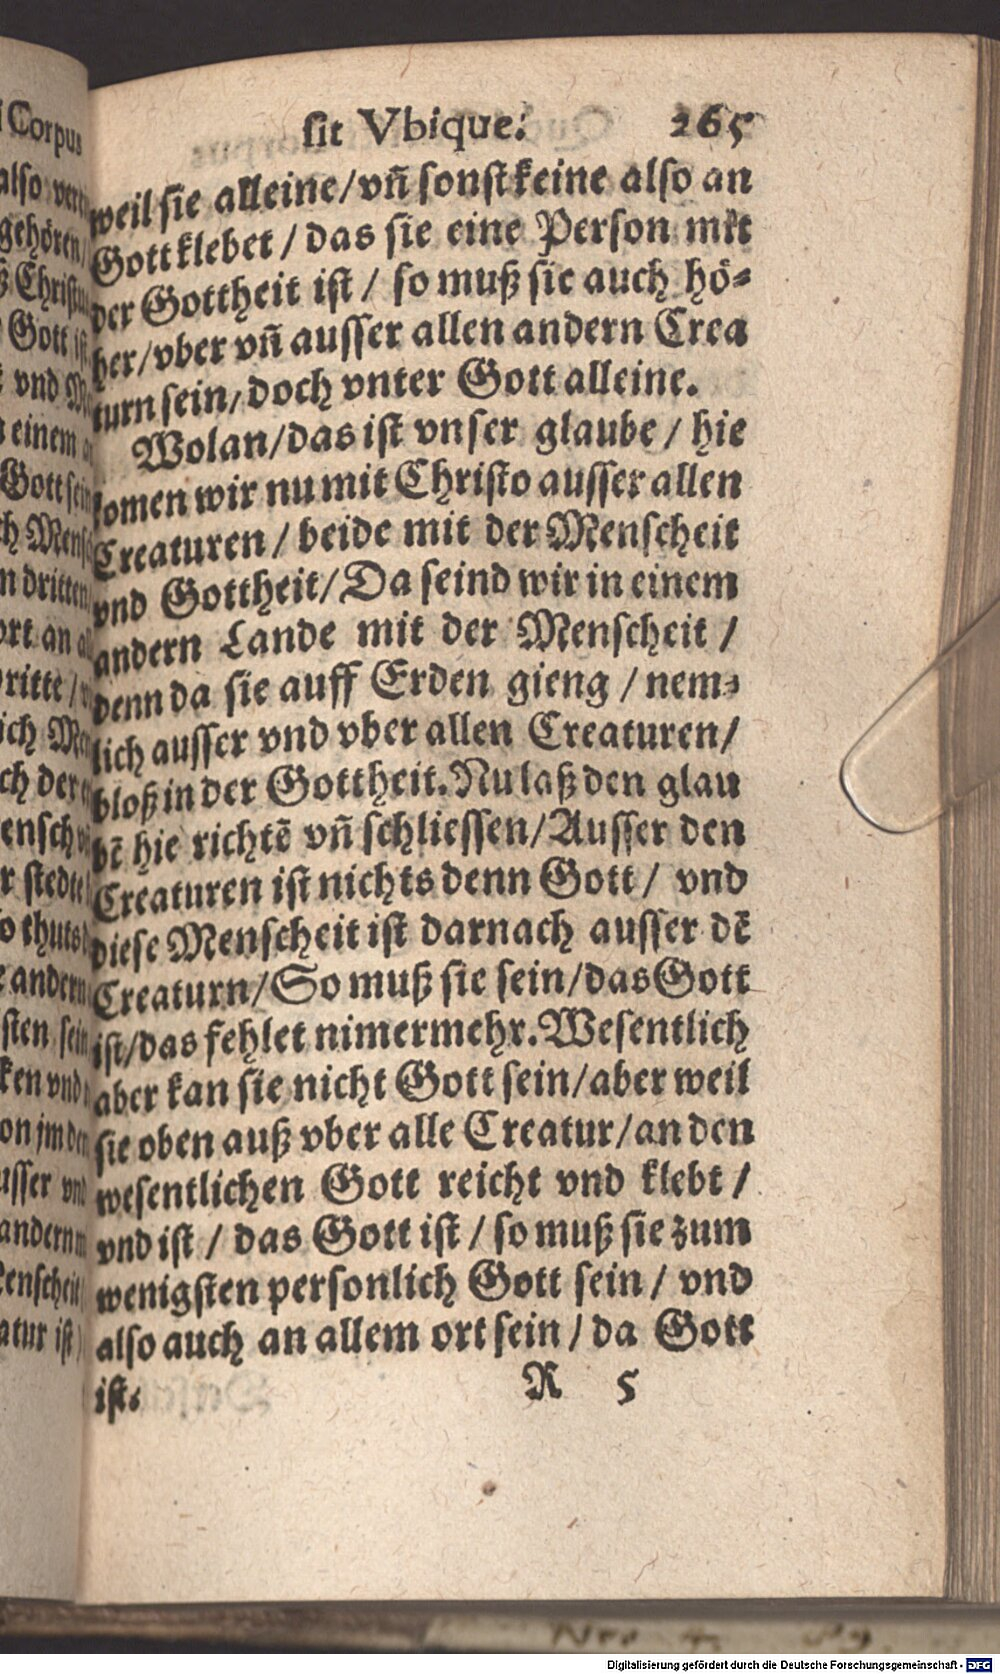 sit Vbique. 265
weil sie alleine/vn̄ sonst keine also an
Gott klebet / das sie eine Person mit
der Gottheit ist / so muß sie auch hö⸗
her/vber vn̄ ausser allen andern Crea
turn sein/doch vnter Gott alleine.
Wolan/das ist vnser glaube / hie
komen wir nu mit Christo ausser allen
Creaturen / beide mit der Menscheit
vnd Gottheit/Da seind wir in einem
andern Lande mit der Menscheit /
denn da sie auff Erden gieng / nem⸗
lich ausser vnd vber allen Creaturen/
bloß in der Gottheit. Nu laß den glau
bē hie richtē vn̄ schliessen/Ausser den
Creaturen ist nichts denn Gott / vnd
diese Menscheit ist darnach ausser dē
Creaturn/So muß sie sein/das Gott
ist/das fehlet nimermehr. Wesentlich
aber kan sie nicht Gott sein/aber weil
sie oben auß vber alle Creatur/an den
wesentlichen Gott reicht vnd klebt /
vnd ist / das Gott ist / so muß sie zum
wenigsten personlich Gott sein / vnd
also auch an allem ort sein / da Gott
ist.
R 5
Digitalisierung gefördert durch die Deutsche Forschungsgemeinschaft - DFG